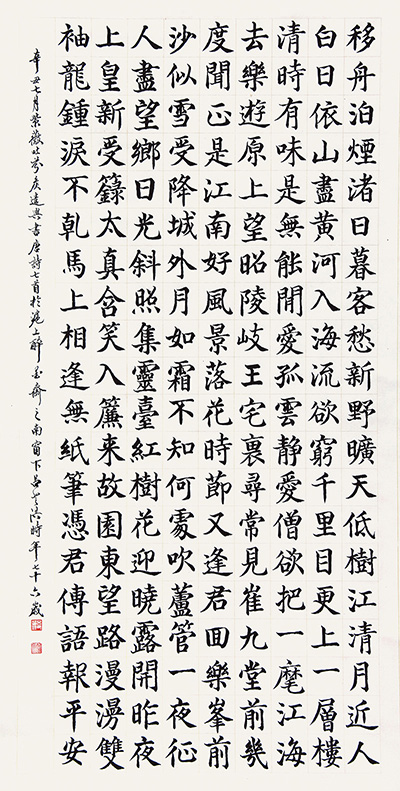 移舟泊煙渚日暮客愁新野曠天低樹江清月近人
白日依山盡黃河入海流欲窮千里目更上一層樓
清時有味是無能閒愛孤雲靜愛僧欲把一麾江海
去樂遊原上望昭陵岐王宅裏尋常見崔九堂前幾
度聞正是江南好風景落花時節又逢君囬樂峯前
沙似雪受降城外月如霜不知何處吹蘆管一夜征
人盡望鄉日光斜照集靈臺紅樹花迎曉露開昨夜
上皇新受籙太真含笑入簾来故園東望路漫漫雙
袖龍鍾淚不乾馬上相逢無紙筆憑君傳語報平安
辛丑七月紫薇吐芬遠興書唐詩七首於滬上醉墨齋之南窗下時年七十六歲